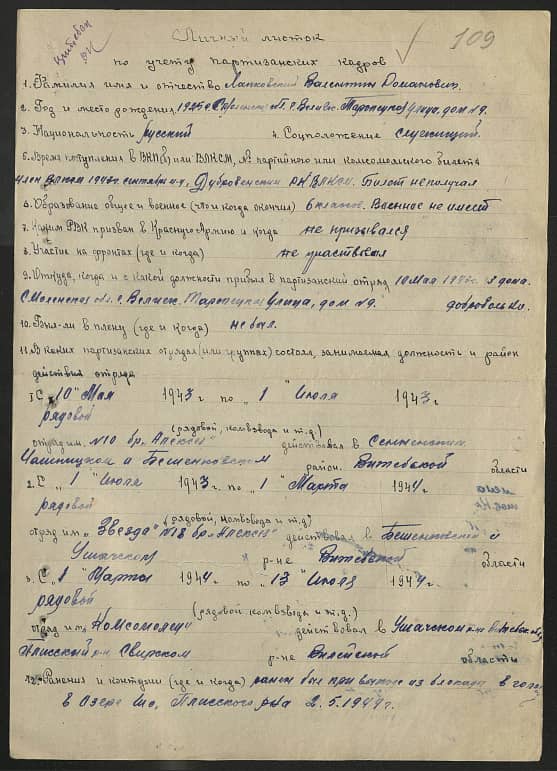 Витебская
РК
109
Личный листок
по учету партизанских кадров
1. Фамилия имя и отчество Лапковский Валентин Романович.
2. Год и место рождения 1925 г. Смоленская г. Велиж. Торопецкая улица, дом №9.
3. Национальность русский 4. Соцположение служащий.
5. Время вступления в ВКП(б) или ВЛКСМ, № партийного или комсомольского билета
член ВЛКСМ 1943 г. сентября м-ц, Дубровенским РК ВЛКСМ. Билет не получал
6. Образование общее и военное (что и когда окончил) 6 классов. Военное не имеет
7. Каким РВК призван в Красную Армию и когда не призывался
8. Участие на фронтах (где и когда) не участвовал
9. Откуда, когда и с какой должности прибыл в партизанский отряд 10 Мая 1943 г. из дома.
Смоленская обл. г. Велиж. Торопецкая улица, дом №9. добровольно.
10. Был-ли в плену (где и когда) не был.
11. В каких партизанских отрядах (или группах) состоял, занимаемая должность и район
действия отряда
1 С "10" Мая 1943 г по "1" Июля 1943 г
рядовой
(рядовой, комвзвода и т.д.)
отряд им. №10 бр. Алексея" действовал в Сенненском,
Чашницком и Бешенковском район. Витебской области
2. С "1" Июля 1943 г. по "1" Марта 1944 г
рядовой
(рядовой, комвзвода и т.д.)
отряд им. "Звезда" №18 бр. Алексея" действовал в Бешенковском и
Ушачском р-не Витебской области
3. С "1" Марта 1944 г по "13" Июля 1944 г.
рядовой
(рядовой комвзвода и т.д.)
отряд им. "Комсомолец" действовал в Ушачском р-не
Плисский р-н Свирском р-не Вилейской области
12. Ранения и контузии (где и когда) ранен был при выходе из блокады в голову
в Озере Шо, Плисского р-на 2.5.1944 г.